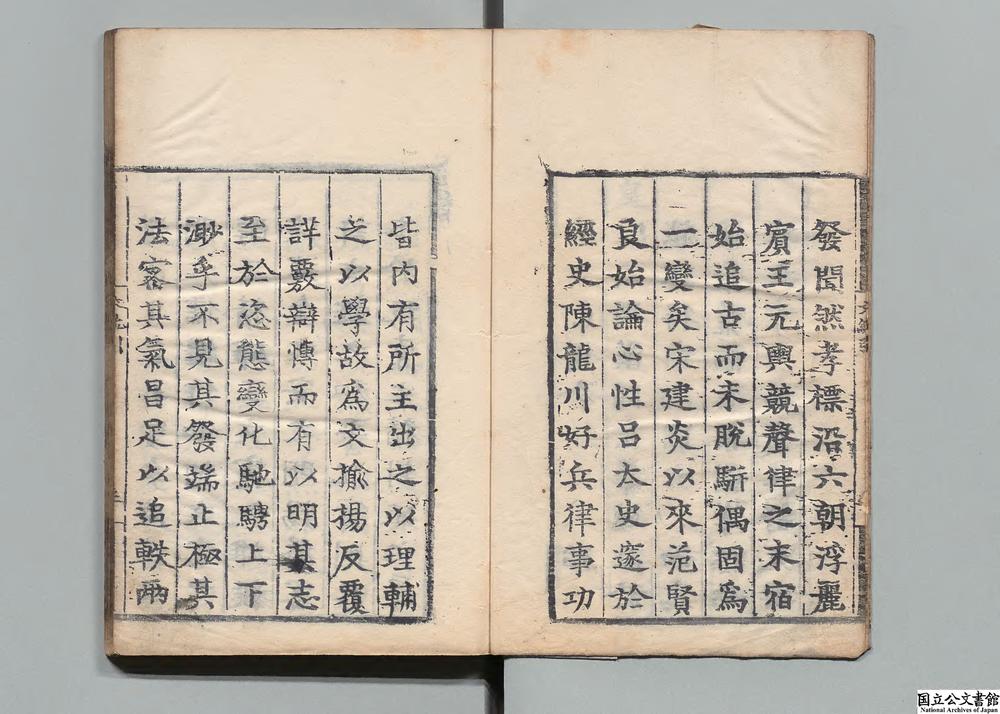 發聞然孝標沿六朝浮麗
賓王元輿競聲律之末宿
始追古而未脫駢偶固爲
一變矣宋建炎以來范賢
良始論心性呂太史邃於
經史陳龍川好兵律事功
皆內有所主出之以理輔
之以學故爲文揄揚反覆
詳覈辯博而有以明其志
至於恣態變化馳騁上下
渺乎不見其發端止極其
法密其氣昌足以追軼兩
国立公文書館
National Archives of Japan